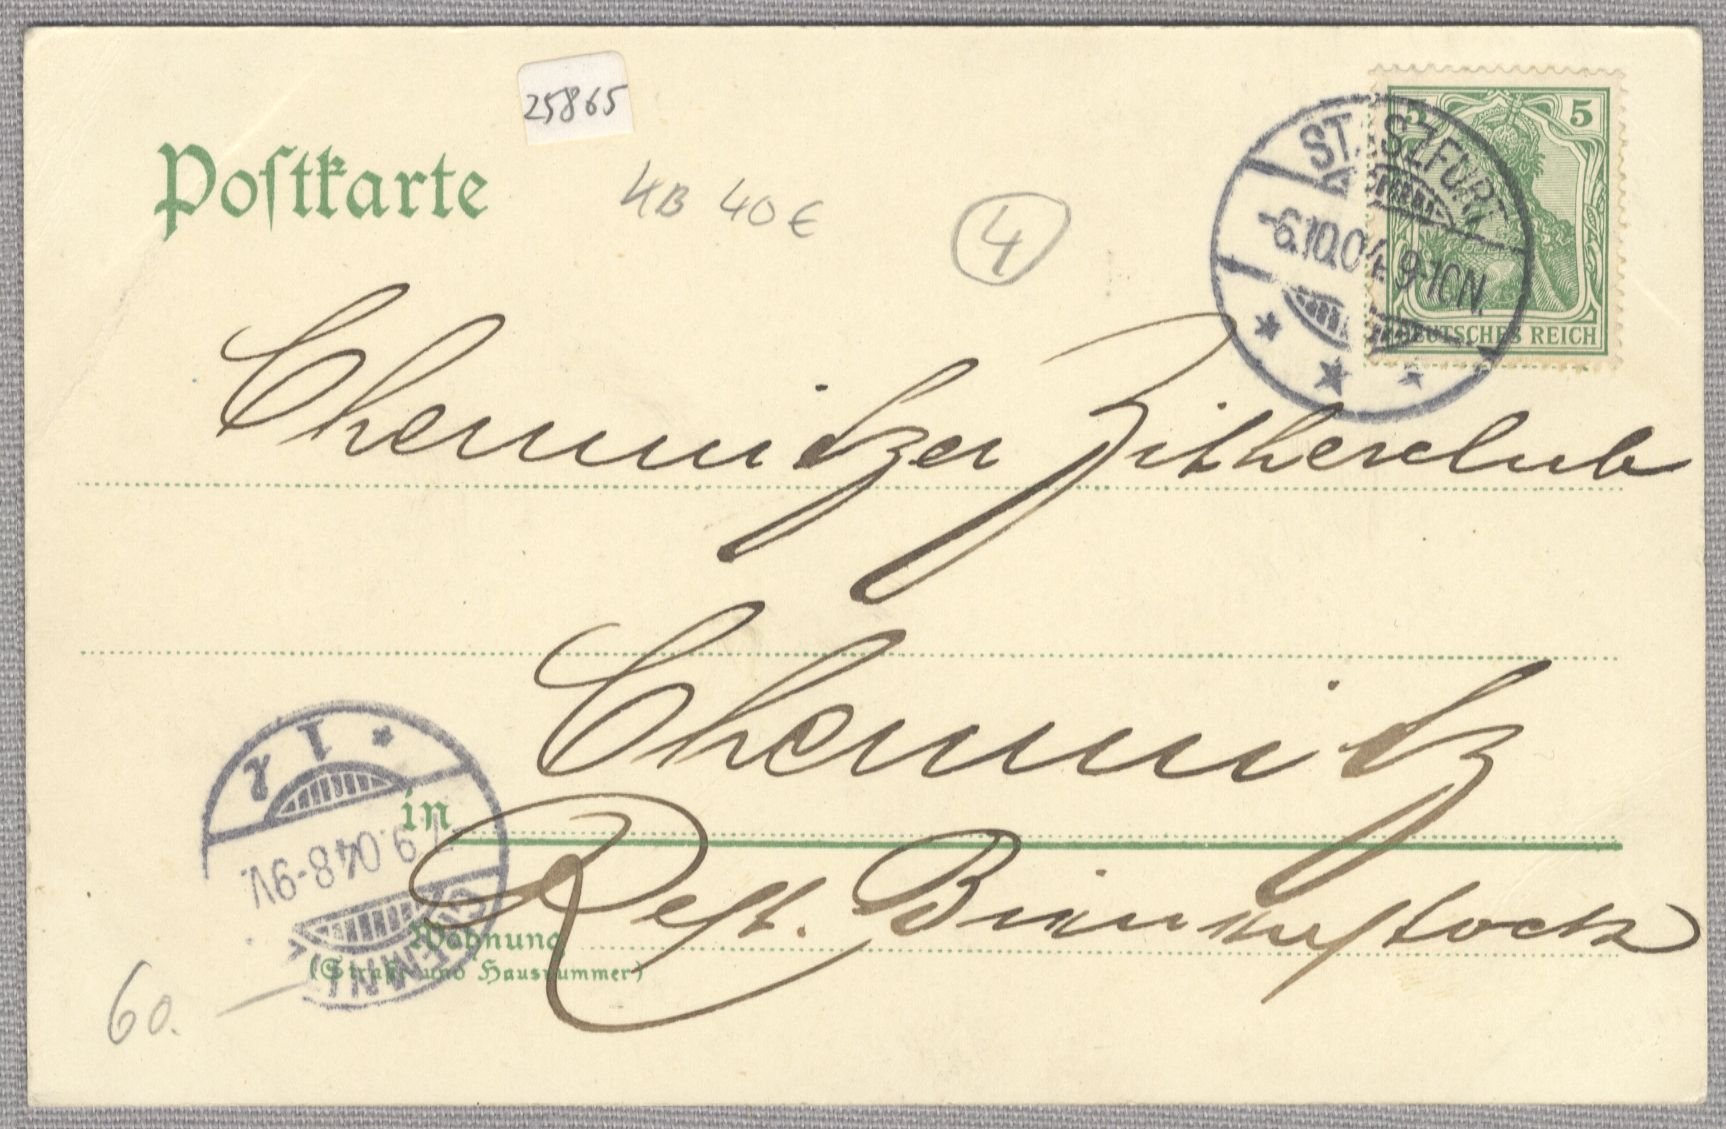 25865
Postkarte
KB 40 €
4
5
STASZFURT
-6.10.04. 9-10N.
DEUTSCHES REICH
Chemnitzer Zitherclub
Chemnitz
in
Rest.
Wohnung
(Straße und Hausnummer)
CHEMNITZ
9.04.8-9V.
1
60.